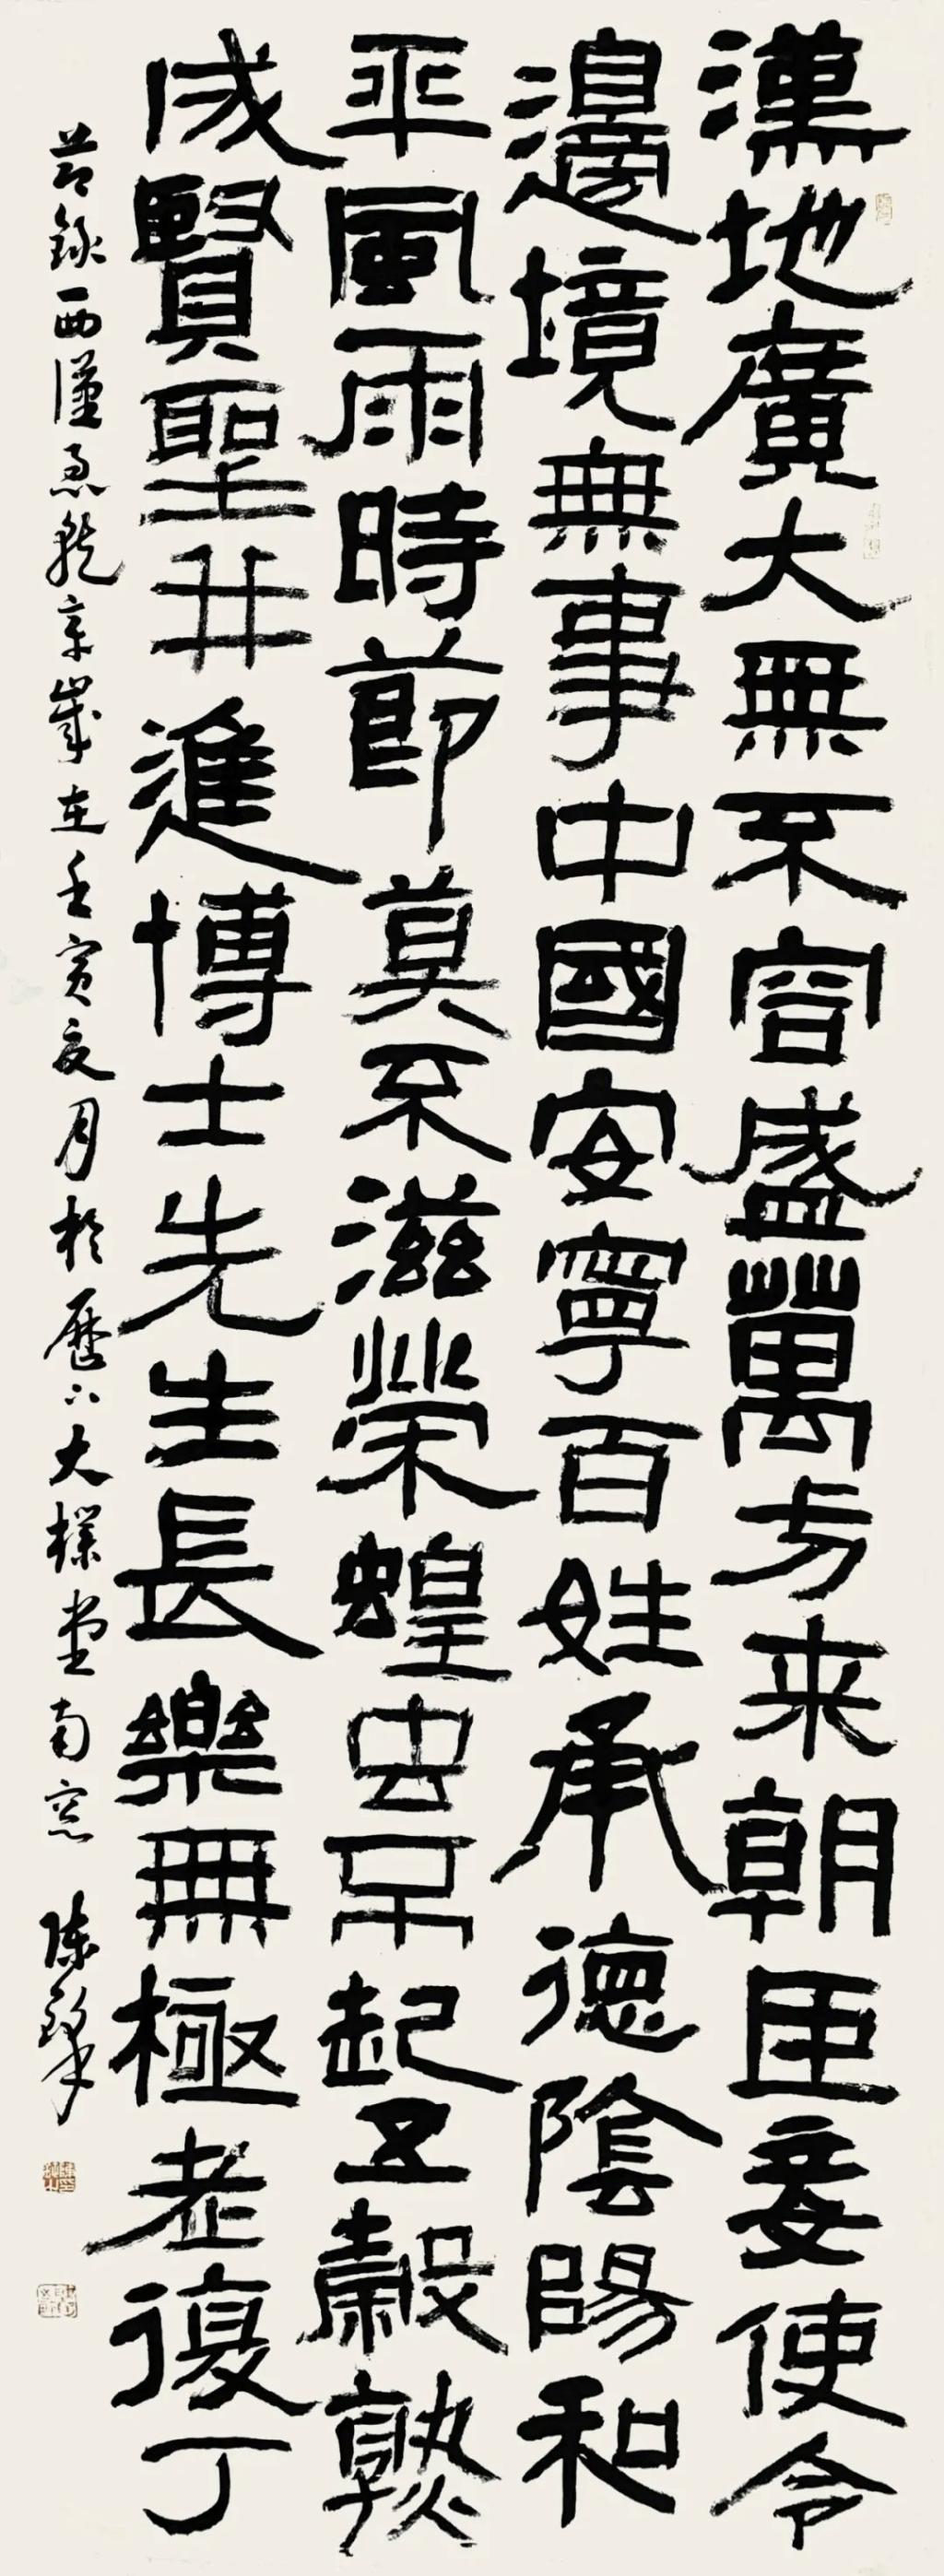 漢地廣大無不容盛萬方来朝臣妾使令
邊境無事中國安寧百姓承德陰陽和
平風雨時節莫不滋榮蝗虫不起五穀熟
成賢聖并進博士先生長樂無極老復丁
节錄西漢急就章歲在壬寅夏月於歷下大樸堂南窗 陳